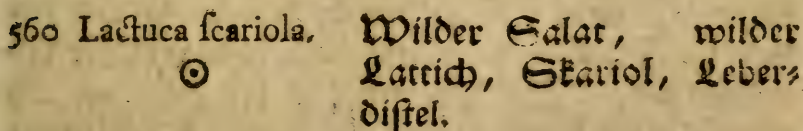 560 Lactuca ſcariola. Wilder Salat, wilder
☉ Lattich, Skariol, Leber⸗
diſtel.